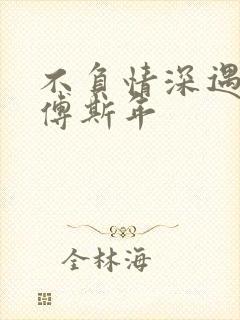 不负情深遇
傅斯年
全林海